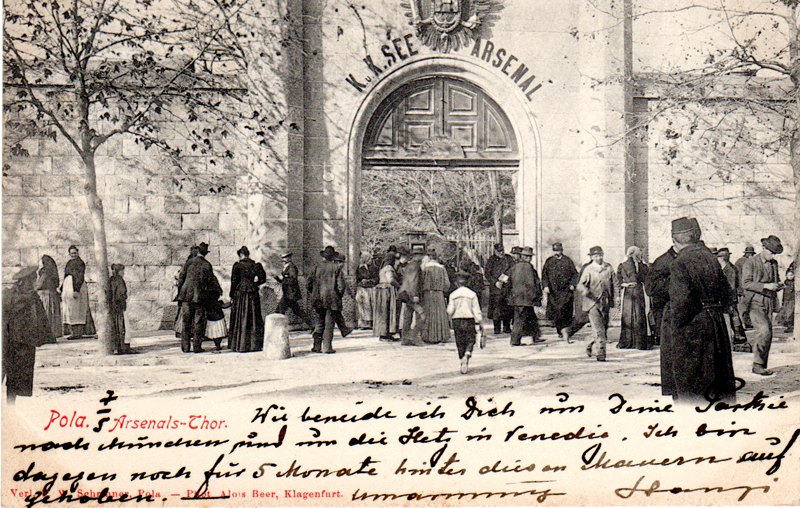 K.u.K. SEE ARSENAL
Pola. 7/5 Arsenals-Thor. Wie beneide ich Dich um Deine Partie
nach München und um die Hetz in Venedig. Ich bin
dagegen noch für 5 Monate hinter diesen Mauern auf-
gehoben. — Umarmung Hansi
Verl. Schrinner, Pola. — Phot. Alois Beer, Klagenfurt.